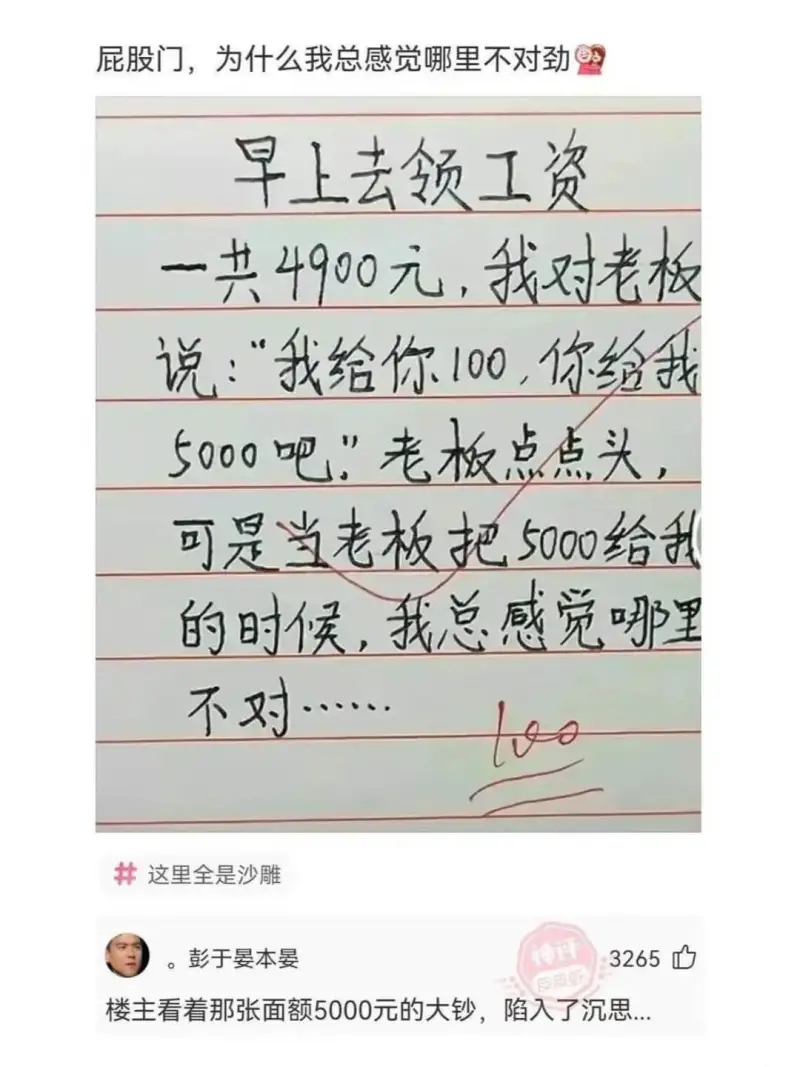 屁股门，为什么我总感觉哪里不对劲
早上去领工资
一共4900元，我对老板
说：“我给你100，你给我
5000吧。”老板点点头，
可是当老板把5000给我
的时候，我总感觉哪里
不对……
100
# 这里全是沙雕
。彭于晏本晏
神评
3265
楼主看着那张面额5000元的大钞，陷入了沉思...